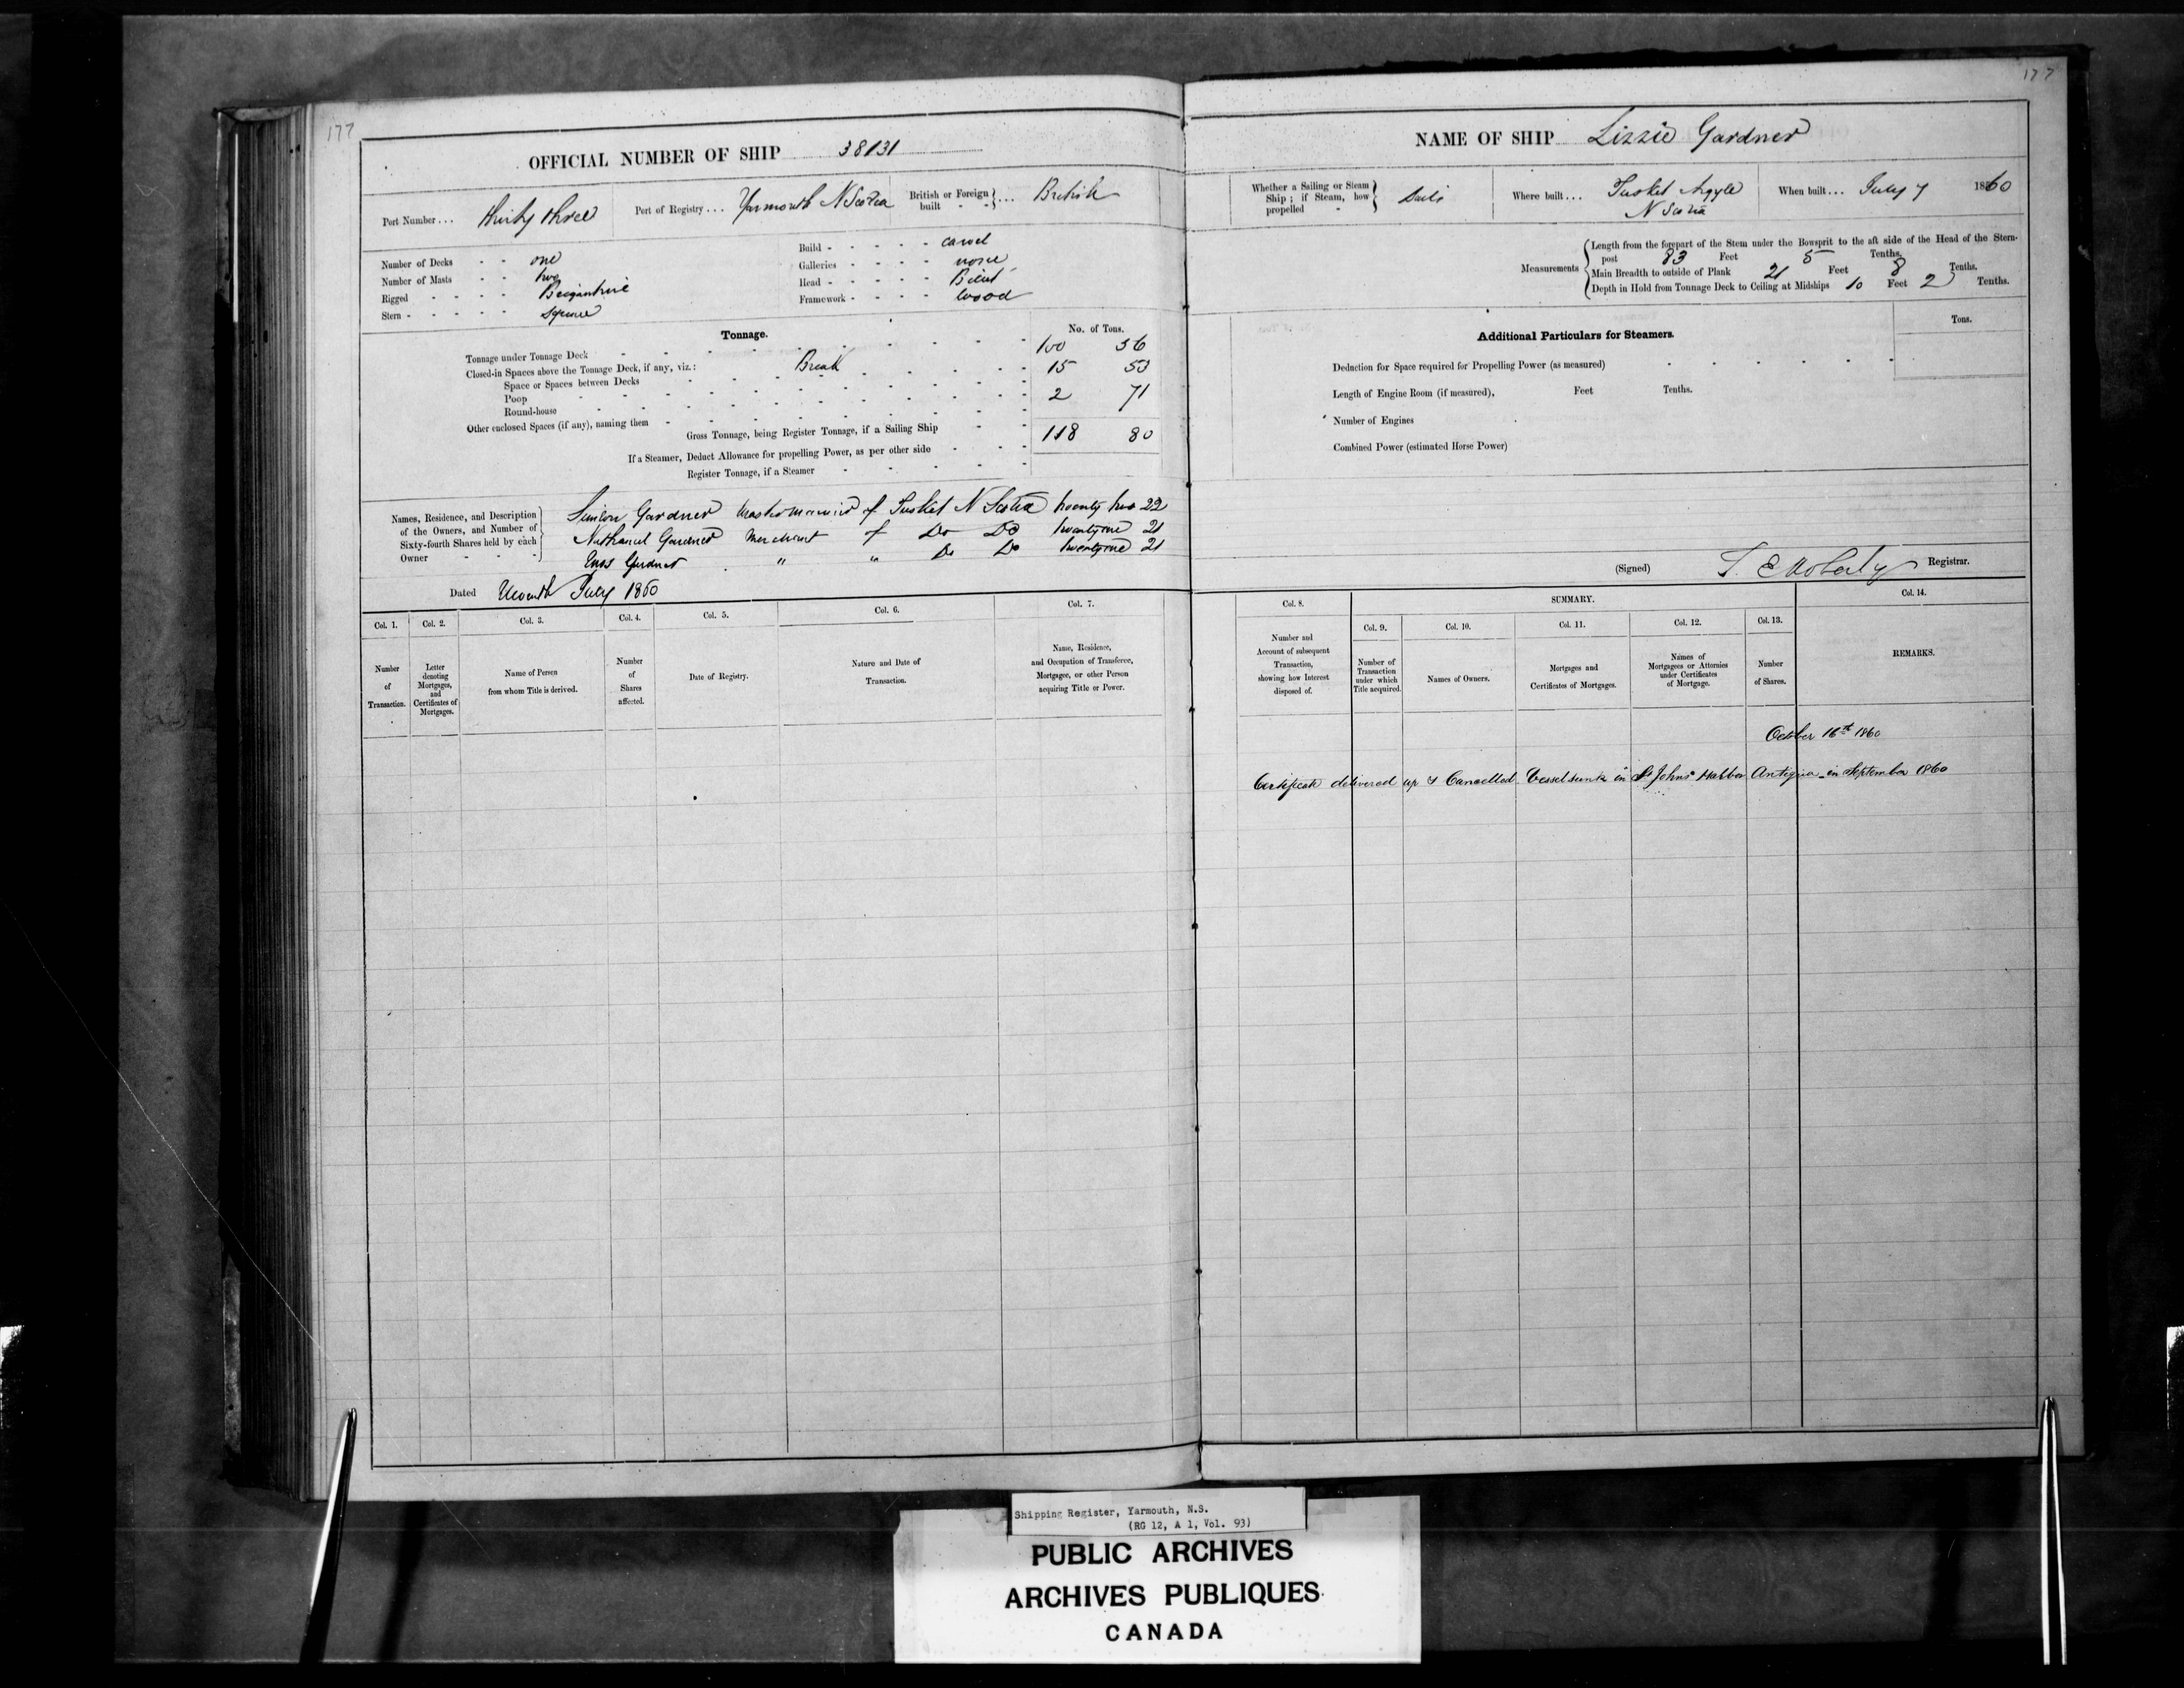 177
177
OFFICIAL NUMBER OF SHIP 38131
NAME OF SHIP Lizzie Gardner
Port Number... thirty three
Port of Registry... Yarmouth N Scotia
British or Foreign built - - }... British
Whether a Sailing or Steam Ship; if Steam, how propelled - } Sails
Where built... Tusket Argyle N Scotia
When built... July 7 1860
Number of Decks - - one
Number of Masts - - two
Rigged - - - - - Brigantine
Stern - - - - - - Square
Build - - - - - - carvel
Galleries - - - - none
Head - - - - - - Billet
Framework - - - - Wood
Measurements
Length from the forepart of the Stem under the Bowsprit to the aft side of the Head of the Stern-
post 83 Feet 5 Tenths.
Main Breadth to outside of Plank 21 Feet 8 Tenths.
Depth in Hold from Tonnage Deck to Ceiling at Midships 10 Feet 2 Tenths.
Tonnage.
No. of Tons.
Tonnage under Tonnage Deck 100 56
Closed-in Spaces above the Tonnage Deck, if any, viz.: Break 15 53
Space or Spaces between Decks
Poop 2 71
Round-house
Other enclosed Spaces (if any), naming them
Gross Tonnage, being Register Tonnage, if a Sailing Ship 118 80
If a Steamer, Deduct Allowance for propelling Power, as per other side
Register Tonnage, if a Steamer
Additional Particulars for Steamers.
Tons.
Deduction for Space required for Propelling Power (as measured)
Length of Engine Room (if measured), Feet Tenths.
Number of Engines
Combined Power (estimated Horse Power)
Names, Residence, and Description
of the Owners, and Number of
Sixty-fourth Shares held by each
Owner
Simeon Gardner Master Mariner of Tusket N Scotia twenty two 22
Nathaniel Gardner Merchant of Do Do twenty one 21
Enos Gardner " " Do Do twenty one 21
Dated July 1860
(Signed) Registrar.
Col. 1.
Number
of
Transaction.
Col. 2.
Letter
denoting
Mortgages,
and
Certificates of
Mortgages.
Col. 3.
Name of Person
from whom Title is derived.
Col. 4.
Number
of
Shares
affected.
Col. 5.
Date of Registry.
Col. 6.
Nature and Date of
Transaction.
Col. 7.
Name, Residence,
and Occupation of Transferee,
Mortgagee, or other Person
acquiring Title or Power.
Col. 8.
Number and
Account of subsequent
Transaction,
showing how Interest
disposed of.
SUMMARY.
Col. 9.
Number of
Transaction
under which
Title acquired.
Col. 10.
Names of Owners.
Col. 11.
Mortgages and
Certificates of Mortgages.
Col. 12.
Names of
Mortgagees or Attornies
under Certificates
of Mortgage.
Col. 13.
Number
of Shares.
Col. 14.
REMARKS.
October 16th 1860
Certificate delivered up & Cancelled. Vessel sunk in St Johns Harbor Antigua in September 1860
Shipping Register, Yarmouth, N.S.
(RG 12, A 1, Vol. 93)
PUBLIC ARCHIVES
ARCHIVES PUBLIQUES
CANADA